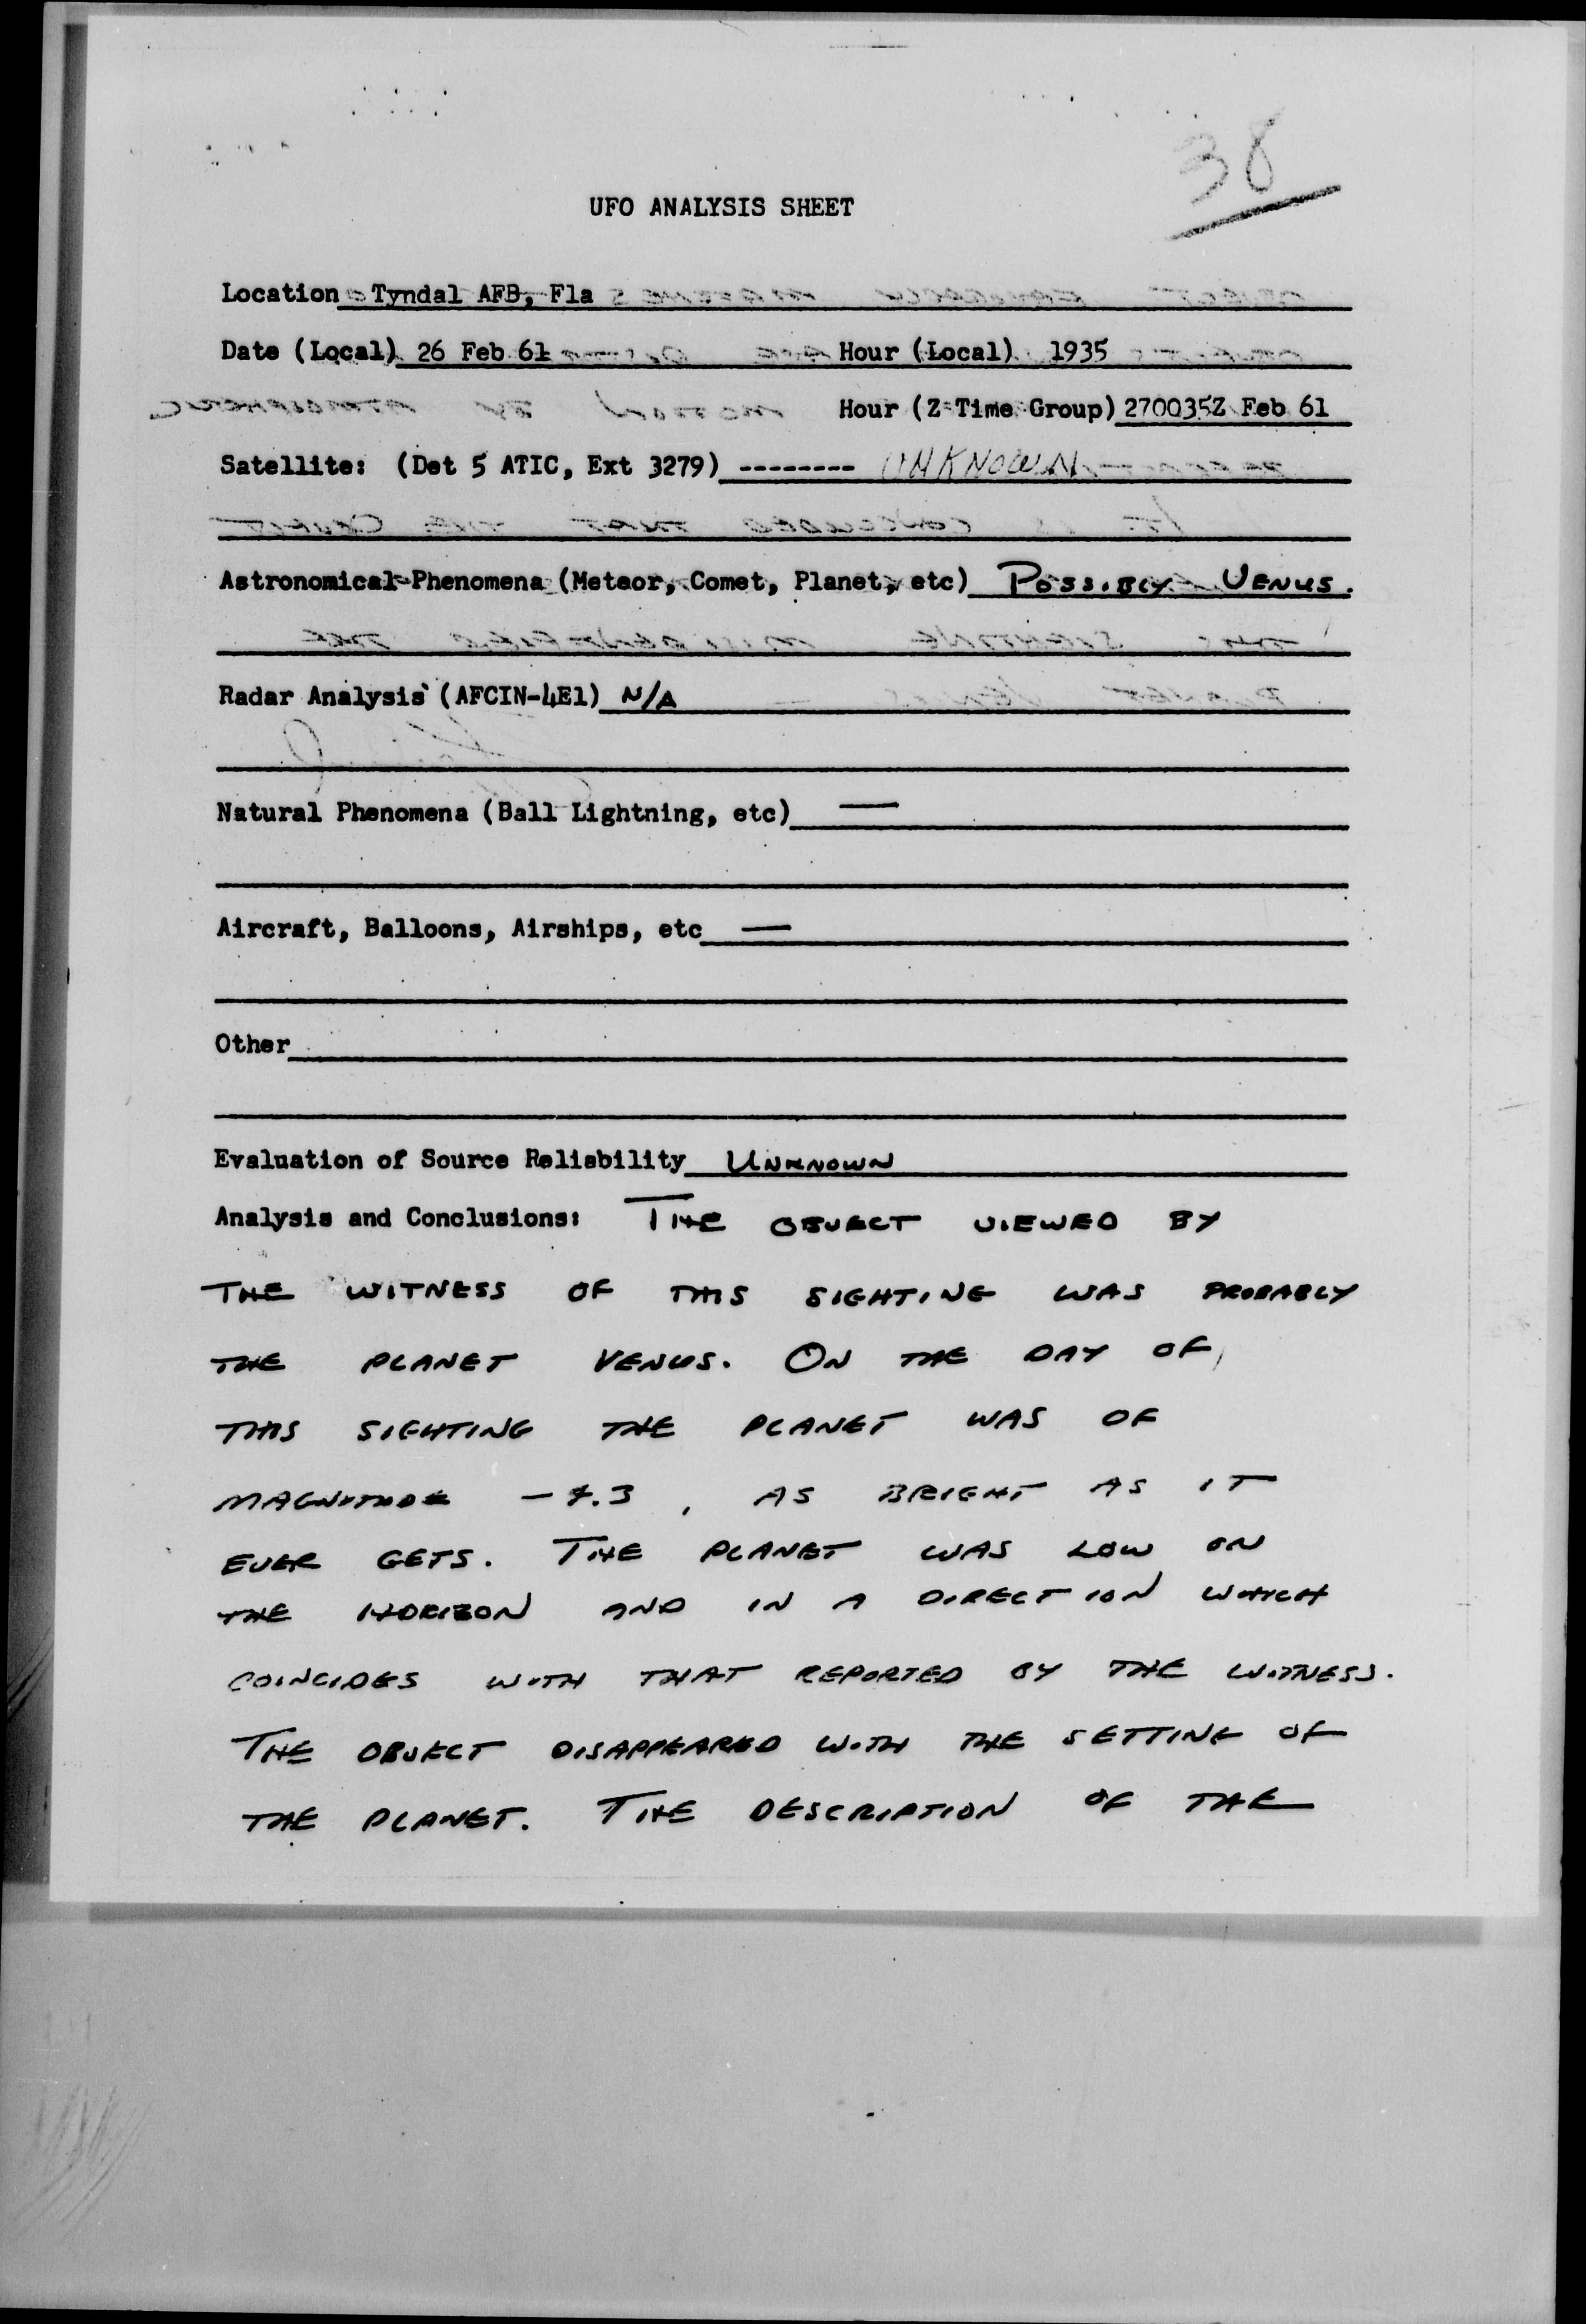 38
UFO ANALYSIS SHEET
Location Tyndal AFB, Fla
Date (Local) 26 Feb 61 Hour (Local) 1935
Hour (Z Time Group) 270035Z Feb 61
Satellite: (Det 5 ATIC, Ext 3279) -------- UNKNOWN
Astronomical Phenomena (Meteor, Comet, Planet, etc) POSSIBLY VENUS.
Radar Analysis (AFCIN-4E1) N/A
Natural Phenomena (Ball Lightning, etc) —
Aircraft, Balloons, Airships, etc —
Other
Evaluation of Source Reliability UNKNOWN
Analysis and Conclusions: THE OBJECT VIEWED BY
THE WITNESS OF THIS SIGHTING WAS PROBABLY
THE PLANET VENUS. ON THE DAY OF
THIS SIGHTING THE PLANET WAS OF
MAGNITUDE -4.3, AS BRIGHT AS IT
EVER GETS. THE PLANET WAS LOW ON
THE HORIZON AND IN A DIRECTION WHICH
COINCIDES WITH THAT REPORTED BY THE WITNESS.
THE OBJECT DISAPPEARED WITH THE SETTING OF
THE PLANET. THE DESCRIPTION OF THE